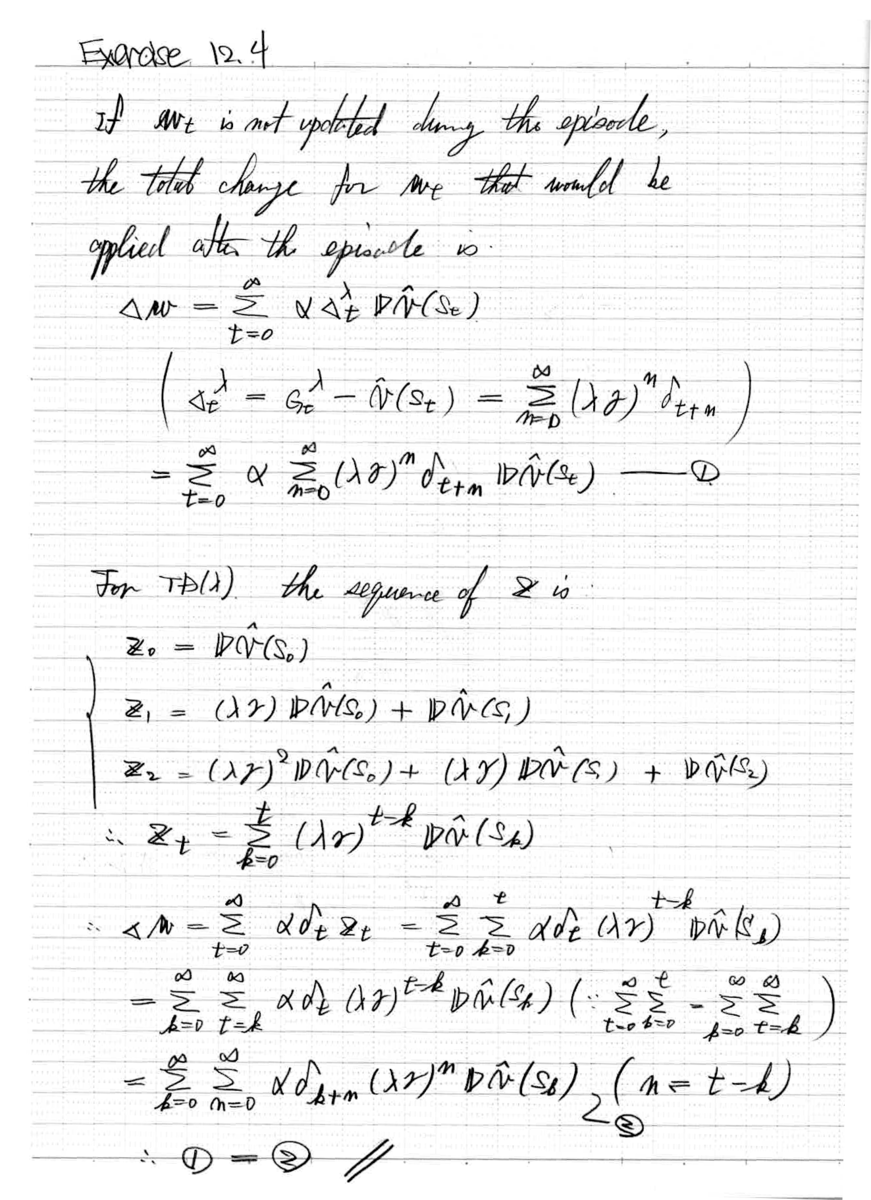 Exercise 12.4
If w_t is not updated during the episode,
the total change for w_t that would be
applied after the episode is.
Δw = Σ_{t=0}^{∞} α Δ_t^λ ∇v̂(S_t)
( Δ_t^λ = G_t^λ - v̂(S_t) = Σ_{n=0}^{∞} (λγ)^n δ_{t+n} )
= Σ_{t=0}^{∞} α Σ_{n=0}^{∞} (λγ)^n δ_{t+n} ∇v̂(S_t) —— ①
For TD(λ) the sequence of z is :
z_0 = ∇v̂(S_0)
z_1 = (λγ) ∇v̂(S_0) + ∇v̂(S_1)
z_2 = (λγ)^2 ∇v̂(S_0) + (λγ) ∇v̂(S_1) + ∇v̂(S_2)
∴ z_t = Σ_{k=0}^{t} (λγ)^{t-k} ∇v̂(S_k)
∴ Δw = Σ_{t=0}^{∞} α δ_t z_t = Σ_{t=0}^{∞} Σ_{k=0}^{t} α δ_t (λγ)^{t-k} ∇v̂(S_k)
= Σ_{k=0}^{∞} Σ_{t=k}^{∞} α δ_t (λγ)^{t-k} ∇v̂(S_k) ( ∵ Σ_{t=0}^{∞} Σ_{k=0}^{t} = Σ_{k=0}^{∞} Σ_{t=k}^{∞} )
= Σ_{k=0}^{∞} Σ_{n=0}^{∞} α δ_{k+n} (λγ)^n ∇v̂(S_k) ( n = t-k )
②
∴ ① = ② //